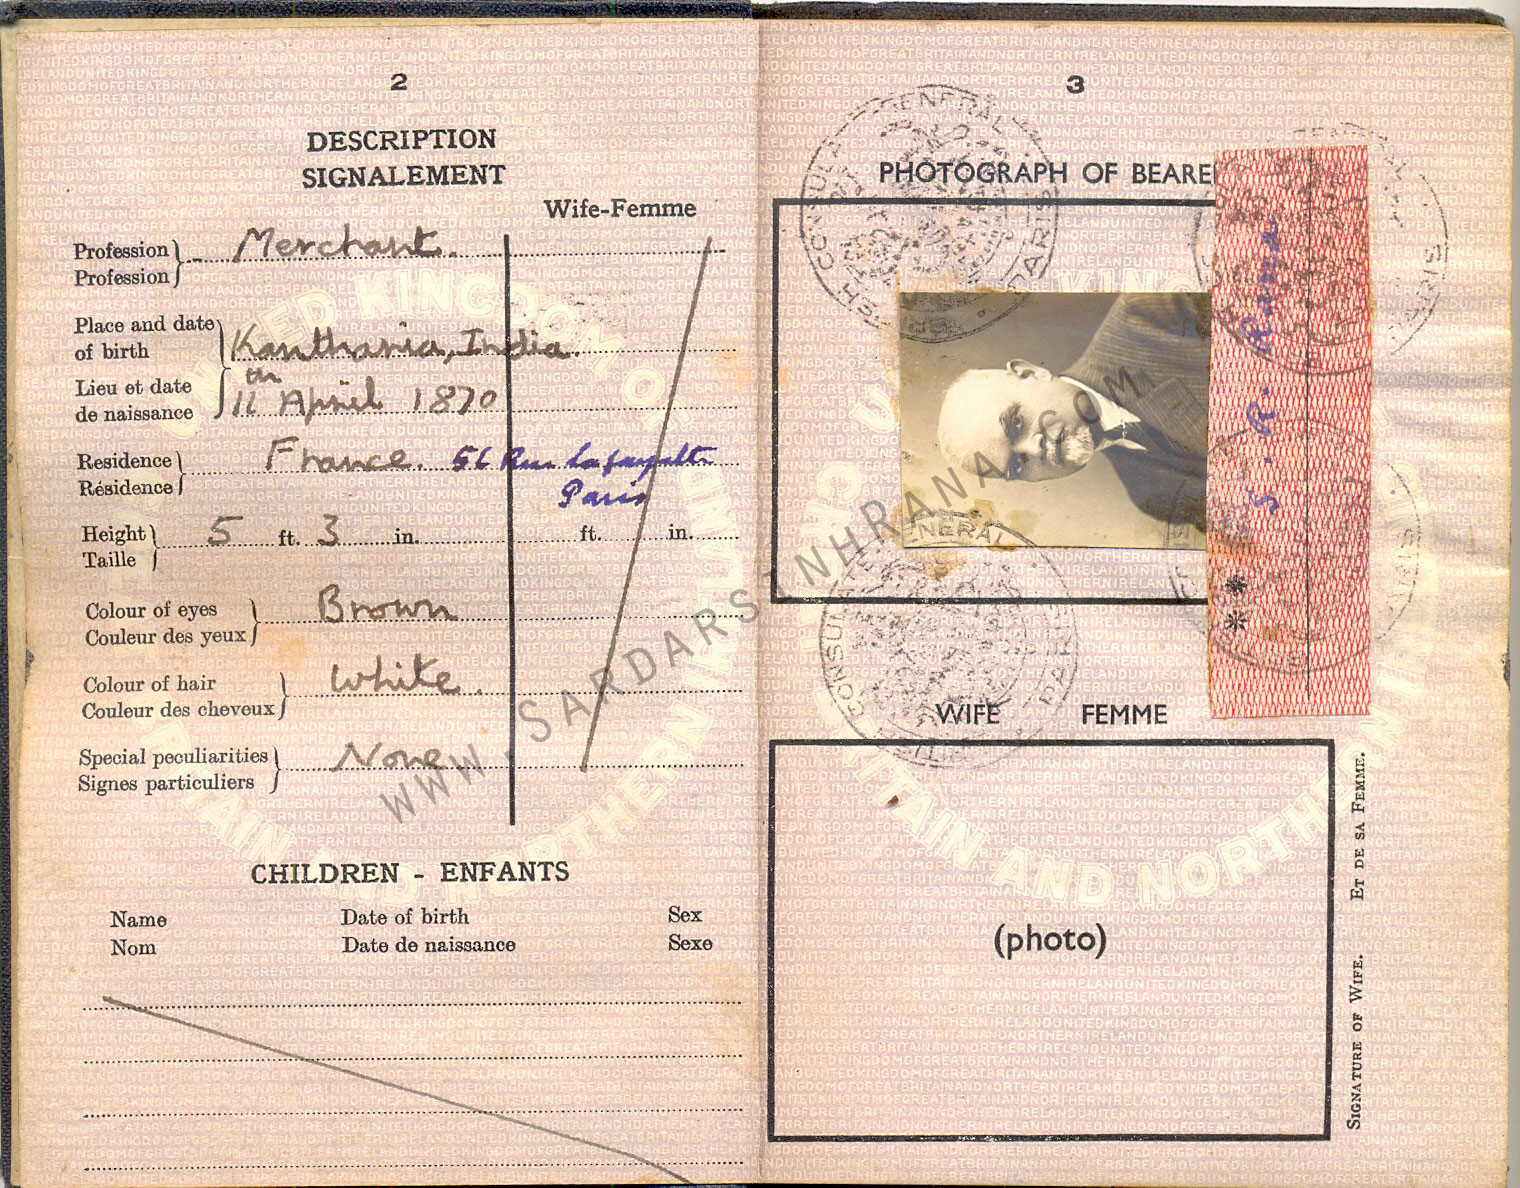 2
DESCRIPTION
SIGNALEMENT
Wife-Femme
Profession
Profession
Merchant.
Place and date
of birth
Lieu et date
de naissance
Kanthania, India.
11th April 1870
Residence
Résidence
France. 56 Rue Lafayette
Paris
Height
Taille
5 ft. 3 in.
ft. in.
Colour of eyes
Couleur des yeux
Brown
Colour of hair
Couleur des cheveux
White.
Special peculiarities
Signes particuliers
None
CHILDREN - ENFANTS
Name Date of birth Sex
Nom Date de naissance Sexe
3
PHOTOGRAPH OF BEARE
S. R. Rana
**
WIFE FEMME
(photo)
SIGNATURE OF WIFE. ET DE SA FEMME.
CONSULATE GENERAL
PARIS
WWW.SARDARSINHRANA.COM
UNITED KINGDOM OF GREAT BRITAIN AND NORTHERN IRELAND